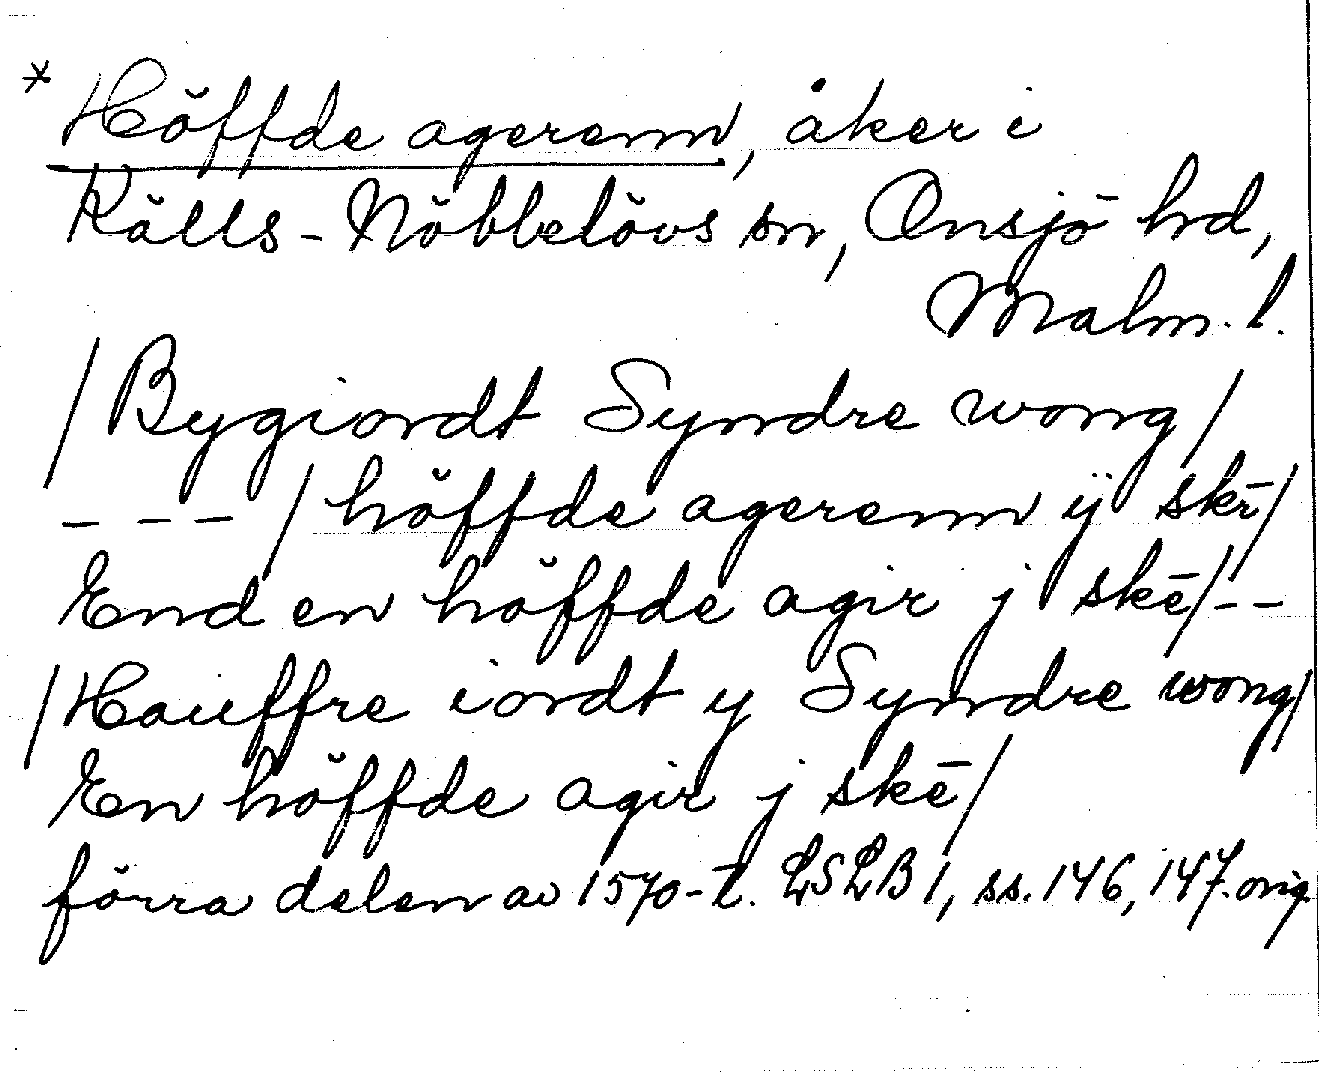 * Höffde agerenn, åker i
Källs-Nöbbelövs sn, Onsjö hrd,
Malm. l.
/Bygiordt Syndre wong/
- - - /höffde agerenn ÿ skē/
End en höffde agir j skē/--
/Hauffre iordt y Syndre wong/
En höffde agir j skē/
förra delen av 1570-t. LSLB 1, ss. 146, 147. orig.